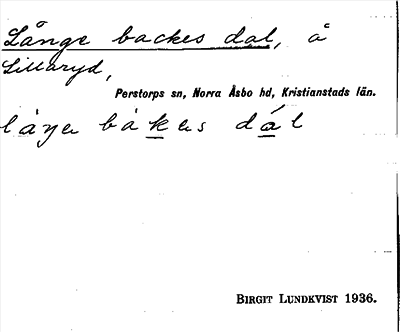 Långe backes dal, å
Lillaryd,
Perstorps sn, Norra Åsbo hd, Kristianstads län.
låŋe bàkes dál
BIRGIT LUNDKVIST 1936.